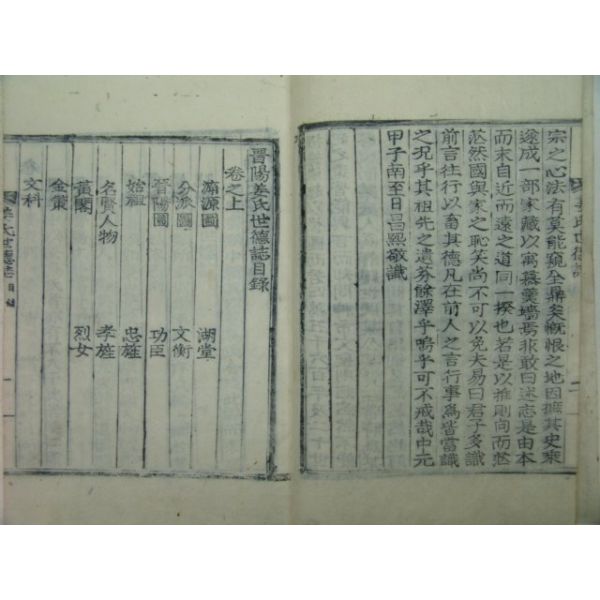 宗之心法有莫能窺全鼎矣慨恨之地因摭其史乘
遂成一部家藏以寓慕羹墻焉非敢曰述志是由本
而末自近而遠之道同一揆也若是以推則向而愁
然國與家之恥矣尚不可以免夫易曰君子多識
前言往行以畜其德凡在前人之言行事爲皆當識
之況乎其祖先之遺芬餘澤乎嗚乎可不戒哉中元
甲子南至日昌熙敬識
姜氏世德誌
一
晋陽姜氏世德誌目錄
卷之上
源源圖 湖堂
分派圖 文衡
晋陽圖 功臣
始祖 忠雄
名賢人物 孝雄
黃閣 烈女
金榮
文科
姜氏世德誌 目錄
一